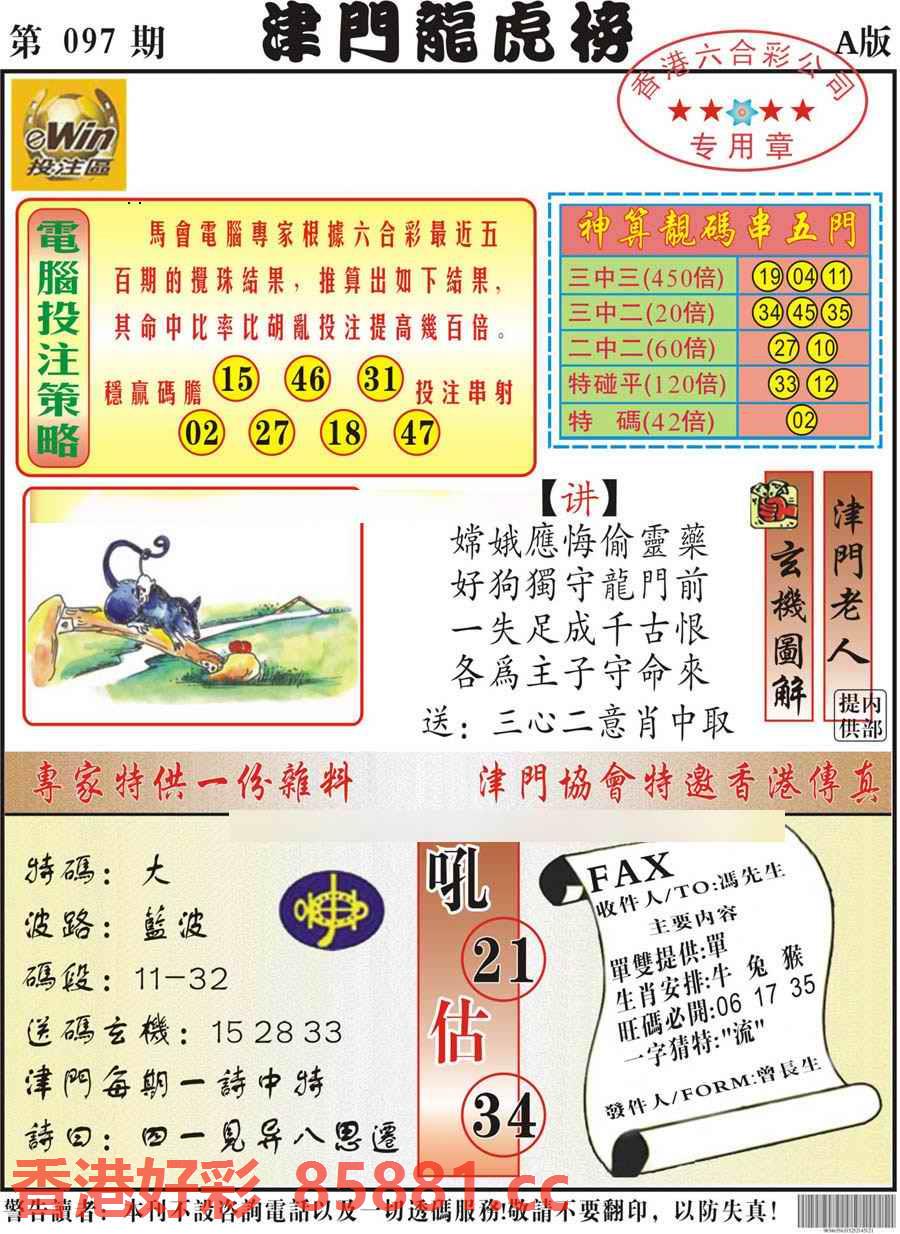 第 097 期
津門龍虎榜
A版
香港六合彩公司
专用章
eWin
投注區
電腦投注策略
馬會電腦專家根據六合彩最近五
百期的攪珠結果，推算出如下結果，
其命中比率比胡亂投注提高幾百倍。
穩贏碼膽 15 46 31 投注串射
02 27 18 47
神算靚碼串五門
三中三(450倍) 19 04 11
三中二(20倍) 34 45 35
二中二(60倍) 27 10
特碰平(120倍) 33 12
特 碼(42倍) 02
【讲】
嫦娥應悔偷靈藥
好狗獨守龍門前
一失足成千古恨
各爲主子守命來
送：三心二意肖中取
玄機圖解
津門老人
内部提供
專家特供一份雜料
津門協會特邀香港傳真
特碼：大
波路：藍波
碼段：11-32
送碼玄機：15 28 33
津門每期一詩中特
詩曰：四一見异八思遷
吼
21
估
34
FAX
收件人/TO:馮先生
主要内容
單雙提供:單
生肖安排:牛 兔 猴
旺碼必開:06 17 35
一字猜特:"流"
發件人/FORM:曾長生
香港好彩 85881.cc
警告讀者：本刊不設咨詢電話以及一切透碼服務!敬請不要翻印，以防失真!